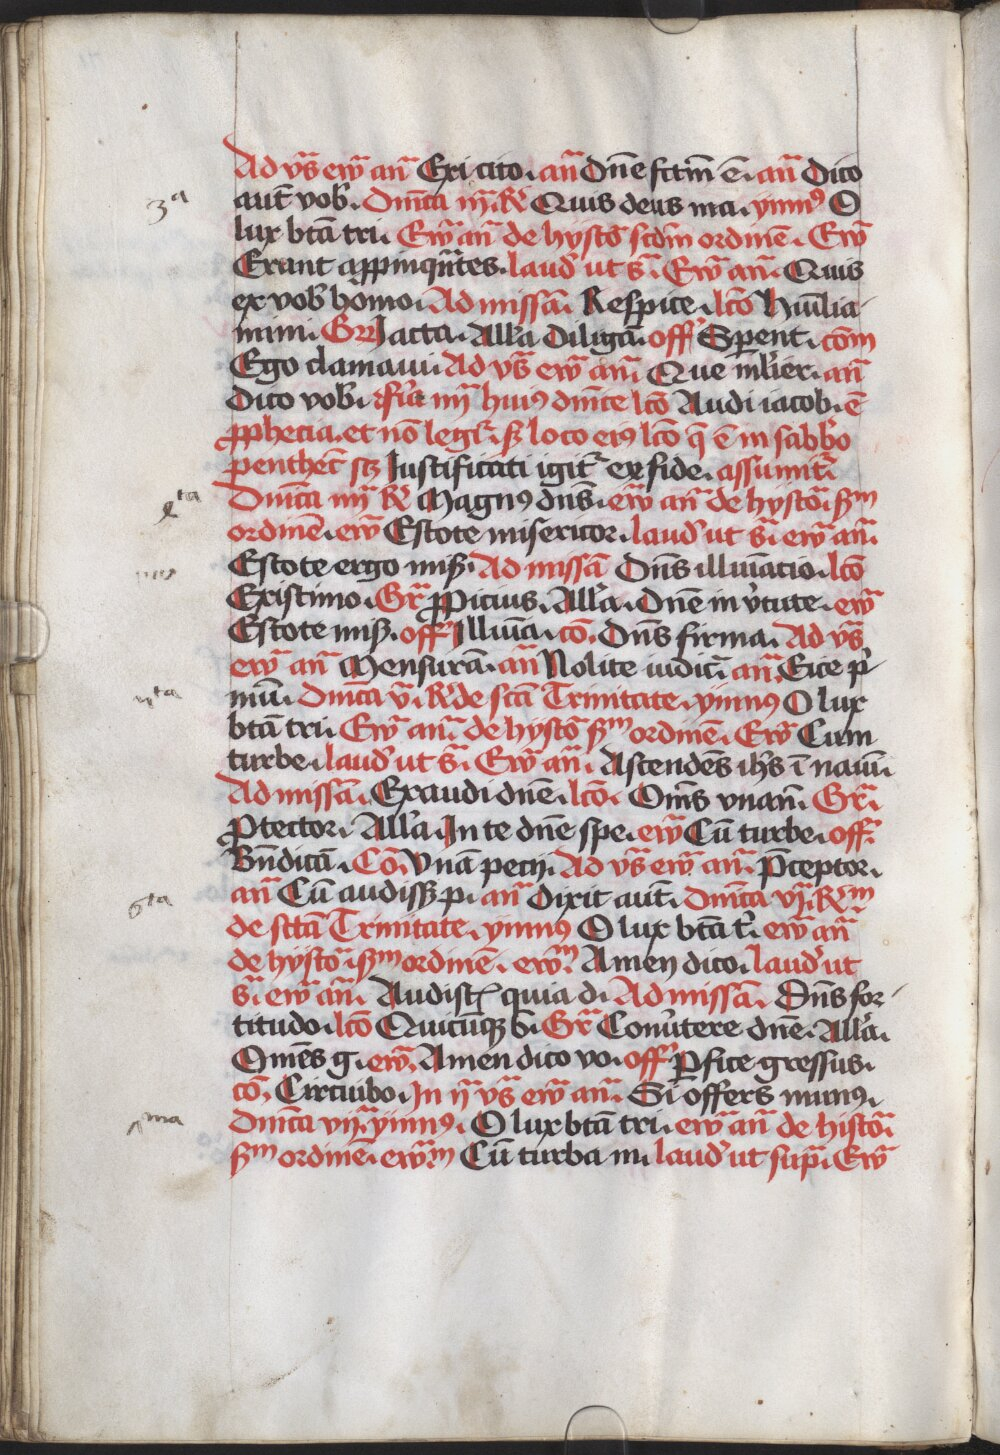 Ad vs̄ ew̄ an̄ Exi cito. an̄ Dn̄e fctm̄ ē. an̄ Dico
3ª
aut̄ vob. Dm̄ca iij. R̄ Quis deus ma. ymn9 O
lux btā tri. Ew̄ an̄ de hystō scdm̄ ordinē. Ew̄
Erant appinqn̄tes. laud ut s̄. Ew̄ an̄. Quis
ex vob homo. Ad missā. Respice. lcō Hūilia
mini. Gr̄ Iacta. All'a Diligā. off Sperent. cōm
Ego clamavi. Ad vs̄ ew̄ an̄. Que mlier. an̄
Dico vob. fr̄ia iiij huius dm̄ce lcō Audi iacob. ē
pphecia. et nō legit̄. s3 loco eius lcō q̄ ē in sabbo
penthec̄ scz Iustificati igit̄ ex fide. assumit̄.
4ta
Dm̄ca iiij R̄ Magn9 dn̄s. ew̄ an̄ de hystō. s3m
ordinē. ew̄ Estote misericor. laud ut s̄. ew̄ an̄.
Estote ergo mis3. Ad missā Dn̄s illuiatio. lcō
Existimo. Gr̄ Ppicius. All'a. Dn̄e in v̄tute. ew̄
Estote mis3. off Illuīa. cō. Dn̄s firma. Ad vs̄
ew̄ an̄ Mensurā. an̄ Nolite iudic̄. an̄. Eice p̄
mū. Dm̄ca v. R̄ de sctā Trinitate. ymn9 O lux
btā tri. Ew̄ an̄. de hystō s3m ordinē. Ew̄ Cum
turbe. laud ut s̄. Ew̄ an̄. Ascendēs ih̄s ī naui.
Ad missā. Exaudi dn̄e. lcō. Om̄s vnan̄. Gr̄.
Ptector. All'a In te dn̄e spe. ew̄ Cū turbe. off
Bn̄dicā. Cō. Vnā pecij. Ad vs̄ ew̄ an̄. P̄ceptor.
6ta
an̄ Cū audiss3 p. an̄ Dixit aut̄. Dm̄ca vj. R̄m
de sctā Trinitate. ymn9 O lux btā t̄. ew̄ an̄
de hystō. s3m ordinē. ew̄m. Amen dico. laud ut
s̄. ew̄ an̄. Audist̄ quia d. Ad missā. Dn̄s for
titudo. lcō Quicūq3 b. Gr̄ Conūtere dn̄e. All'a.
Omēs g. ew̄. Amen dico vo. off Pfice gressus.
cō. Circuibo. In ij vs̄ ew̄ an̄. Si offers munus.
7ma
Dm̄ca vij. ymn9. O lux btā tri. ew̄ an̄ de histō.
s3m ordinē. ew̄m Cū turba m. laud ut sup̄. Ew̄